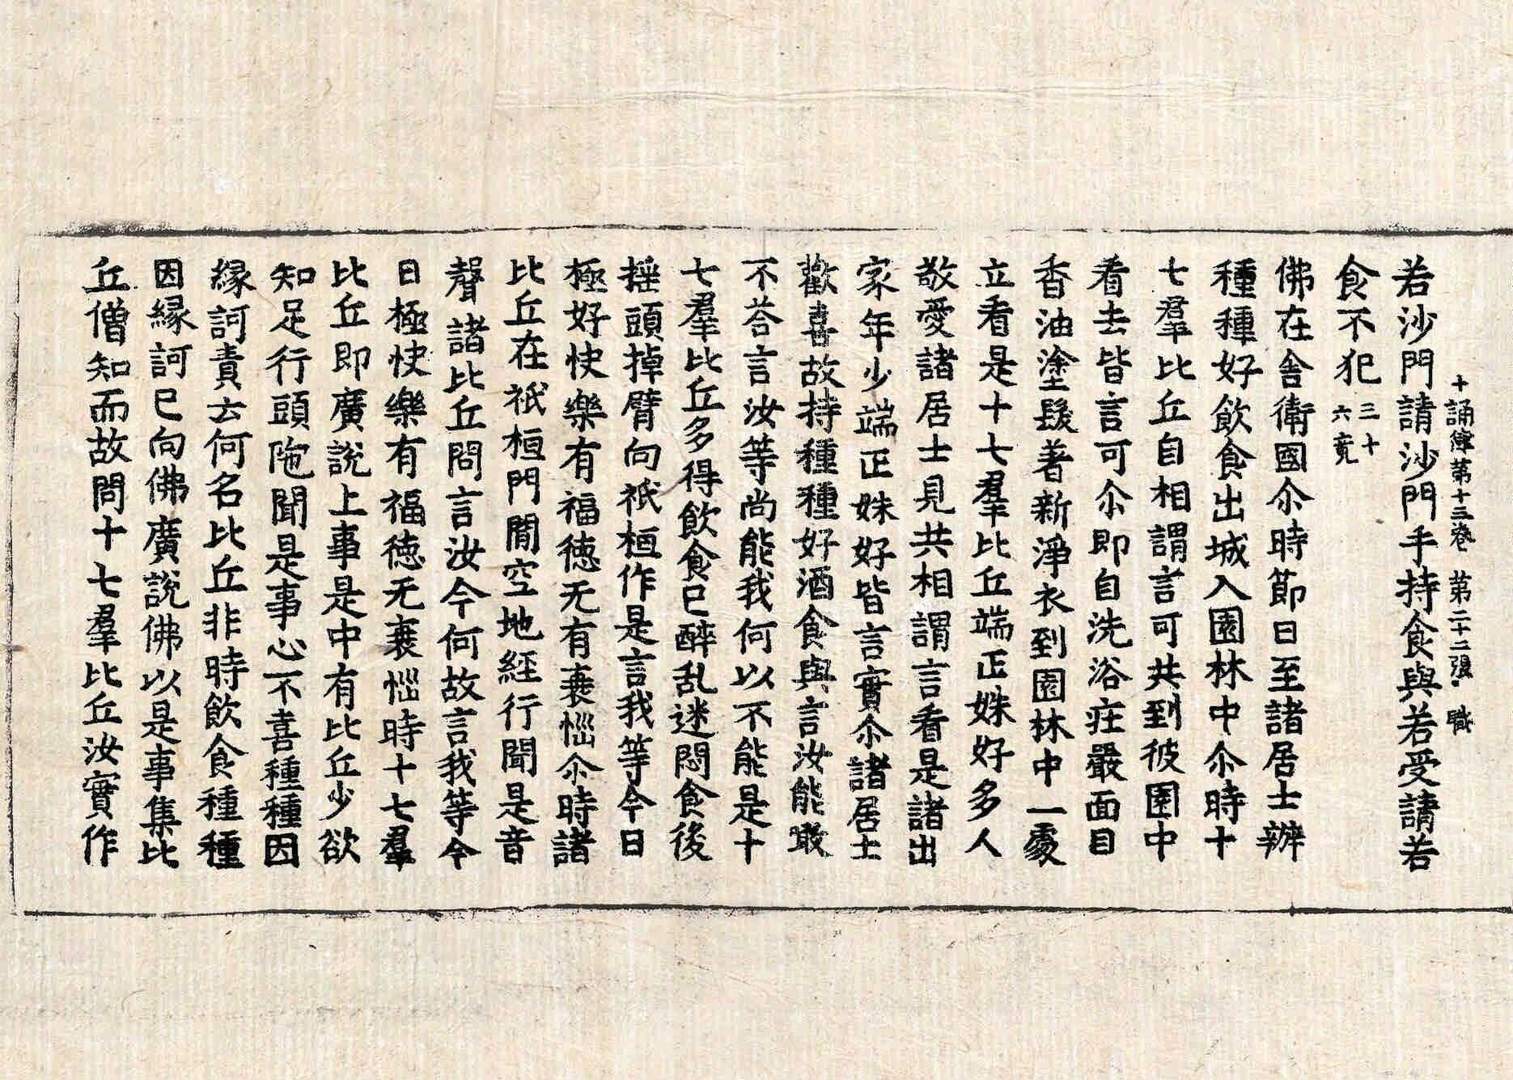 若沙門請沙門手持食與若受請若
十誦律第十三卷 第二十二張 職
食不犯三十六竟
佛在舍衛國尒時節日至諸居士辦
種種好飲食出城入園林中尒時十
七羣比丘自相謂言可共到彼園中
看去皆言可尒即自洗浴莊嚴面目
香油塗髮著新淨衣到園林中一處
立看是十七羣比丘端正姝好多人
敬愛諸居士見共相謂言看是諸出
家年少端正姝好皆言實尒諸居士
歡喜故持種種好酒食與言汝能噉
不荅言汝等尚能我何以不能是十
七羣比丘多得飲食已醉乱迷悶食後
捶頭掉臂向祇桓作是言我等今日
極好快樂有福德无有衰惱尒時諸
比丘在祇桓門間空地經行聞是音
聲諸比丘問言汝今何故言我等今
日極快樂有福德无衰惱時十七羣
比丘即廣說上事是中有比丘少欲
知足行頭陁聞是事心不喜種種因
緣訶責云何名比丘非時飲食種種
因緣訶已向佛廣說佛以是事集比
丘僧知而故問十七羣比丘汝實作